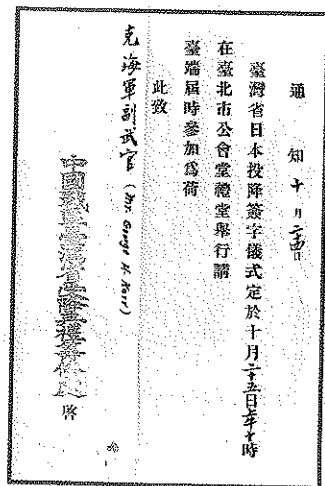 通知 十月廿四日
臺灣省日本投降簽字儀式定於十月二十五日上午十時
在臺北市公會堂禮堂舉行請
臺端屆時參加爲荷
此致
克海軍副武官 (Mr. George H. Kerr)
中國戰區臺灣省 啓